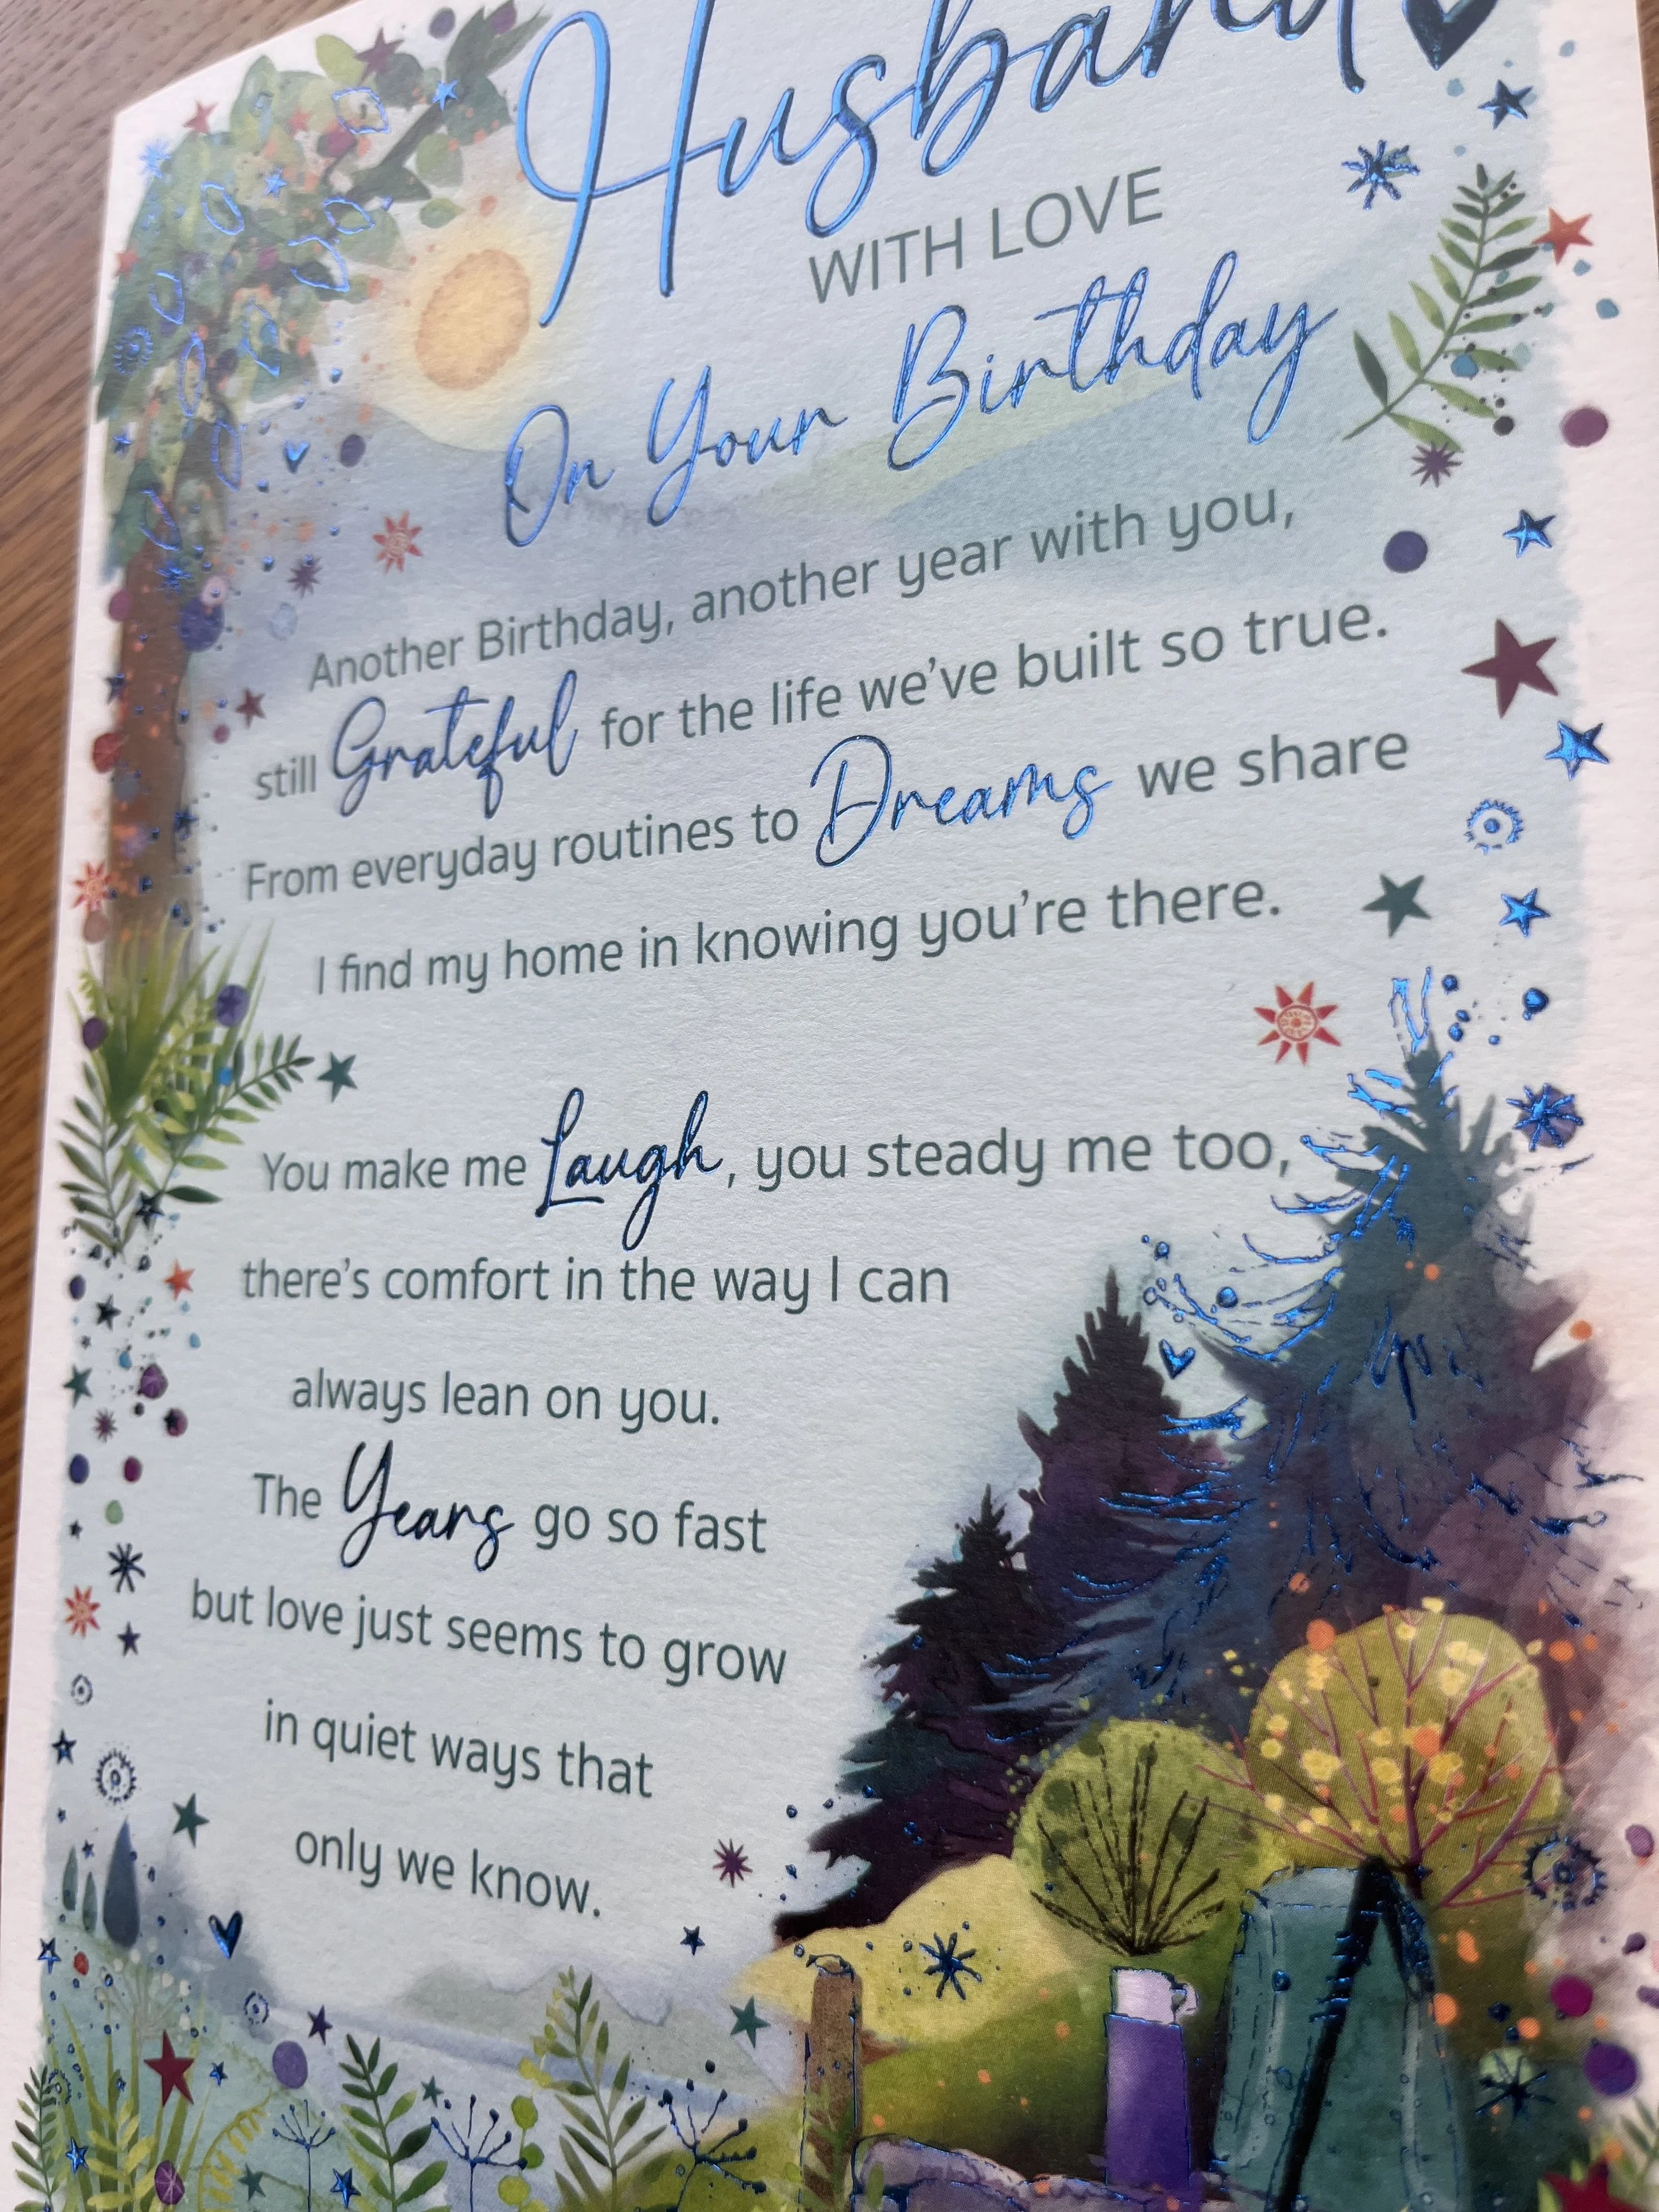 Husband
WITH LOVE
On Your Birthday
Another Birthday, another year with you,
still Grateful for the life we've built so true.
From everyday routines to Dreams we share
I find my home in knowing you're there.
You make me Laugh, you steady me too,
there's comfort in the way I can
always lean on you.
The Years go so fast
but love just seems to grow
in quiet ways that
only we know.